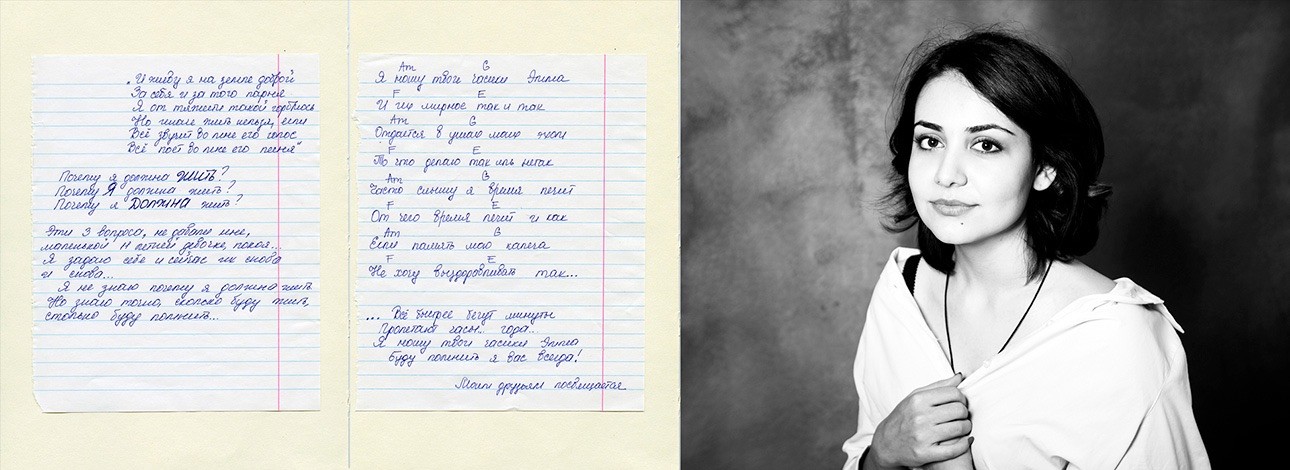 „И живу я на земле доброй
За себя и за того парня
Я от тяжести такой горблюсь
Но иначе жить нельзя, если
Всё звучит во мне его голос
Всё поет во мне его песня“
Почему я должна ЖИТЬ?
Почему Я должна жить?
Почему я ДОЛЖНА жить?
Эти 3 вопроса, не давали мне,
маленькой 11 летней девочке, покоя...
Я задаю себе и сейчас их снова
и снова...
Я не знаю почему я должна жить
Но знаю точно, сколько буду жить,
столько буду помнить...
Am G
Я ношу твои часики Эмма
F E
И их мирное так и так
Am G
Отдается в ушах моих эхом
F E
То что делаю так иль не так
Am G
Часто слышу я время лечит
F E
От чего время лечит и как
Am G
Если память мою калеча
F E
Не хочу выздоравливать так...
... Всё быстрее бегут минуты
Пролетают часы... года...
Я ношу твои часики Эмма
Буду помнить я вас всегда!
Моим друзьям посвящается